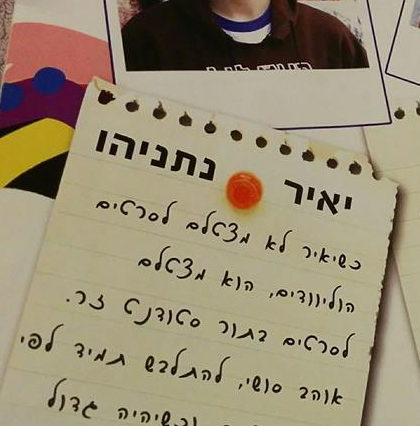 יאיר נתניהו
כשיאיר לא מצאלם לסרטים
הוליוודים, הוא מצטלם
לסרטים בתור סטודנט זר.
אוהב סושי, להתלבש תמיד לפי
וכשיהיה גדול